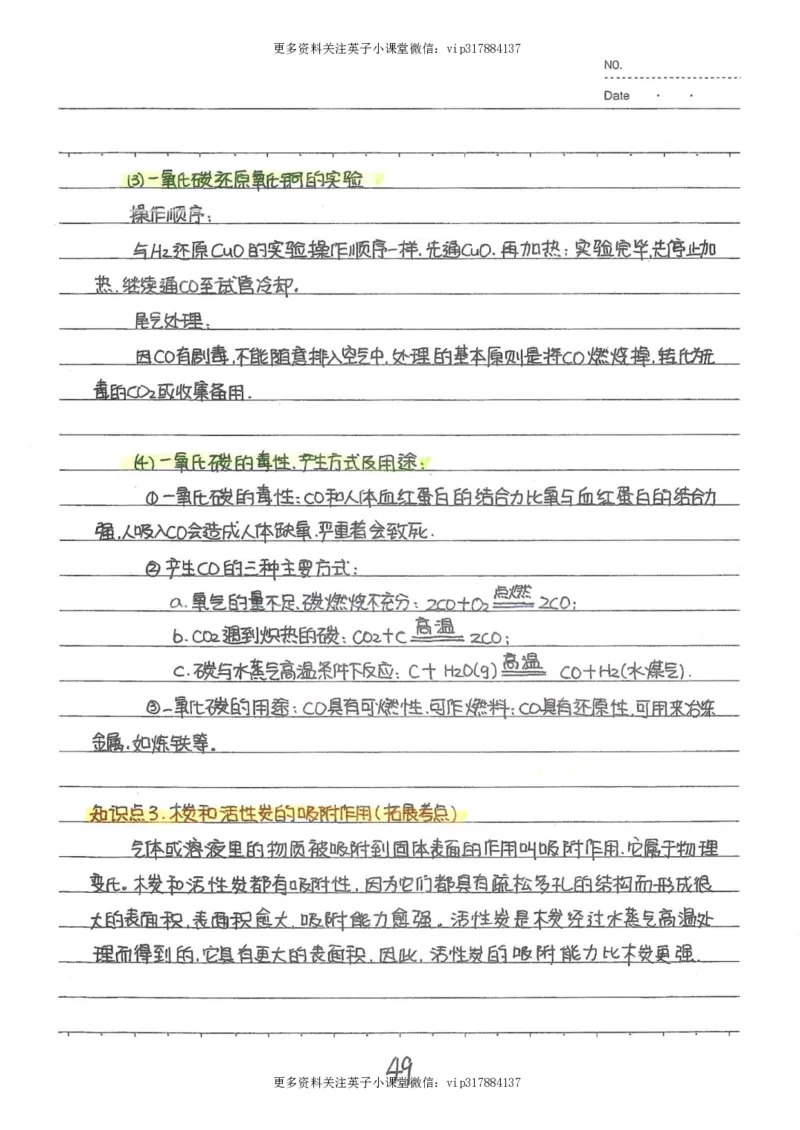 更多资料关注英子小课堂微信：vip317884137
NO.
Date
(3)一氧化碳还原氧化铜的实验
操作顺序：
与H2还原CuO的实验操作顺序一样，先通CuO，再加热；实验完毕，先停止加
热，继续通CO至试管冷却。
尾气处理：
因CO有剧毒，不能随意排入空气中，处理的基本原则是将CO燃烧掉，转化为无
毒的CO2或收集备用．
(4)一氧化碳的毒性、产生方式及用途：
①一氧化碳的毒性：CO和人体血红蛋白的结合力比氧与血红蛋白的结合力
强，人吸入CO会造成人体缺氧，严重着会致死．
②产生CO的三种主要方式：
a. 氧气的量不足，碳燃烧不充分：2CO+O2 点燃 2CO；
b. CO2遇到炽热的碳：CO2+C 高温 2CO；
c. 碳与水蒸气高温条件下反应：C+H2O(g) 高温 CO+H2(水煤气)．
③一氧化碳的用途：CO具有可燃性，可作燃料；CO具有还原性，可用来冶炼
金属，如炼铁等。
知识点3．木炭和活性炭的吸附作用(拓展考点)
气体或溶液里的物质被吸附到固体表面的作用叫吸附作用，它属于物理
变化。木炭和活性炭都有吸附性，因为它们都具有疏松多孔的结构而形成很
大的表面积，表面积愈大，吸附能力愈强。活性炭是木炭经过水蒸气高温处
理而得到的，它具有更大的表面积，因此，活性炭的吸附能力比木炭更强．
49
更多资料关注英子小课堂微信：vip317884137